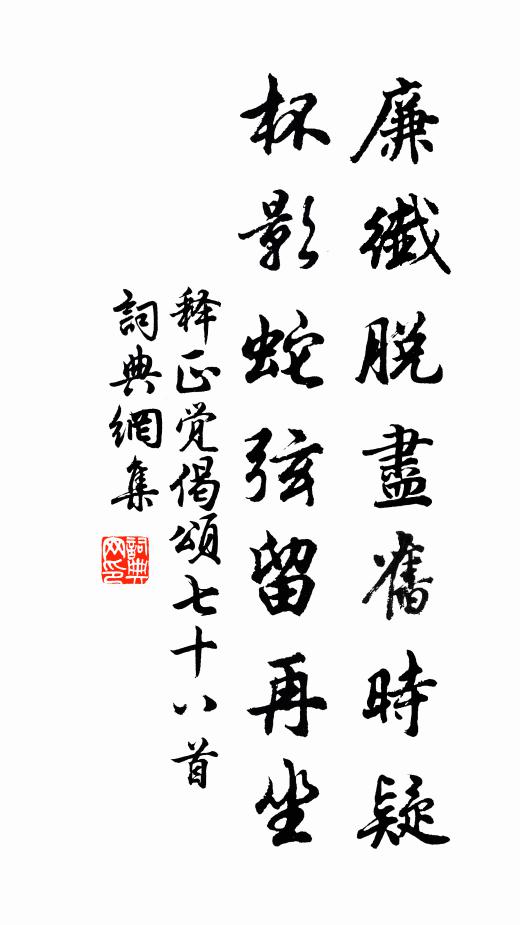 廉纖脱盡舊時疑
杯影蛇弦留再坐
释正觉偈頌七十八首
詞典網集
詞典网印